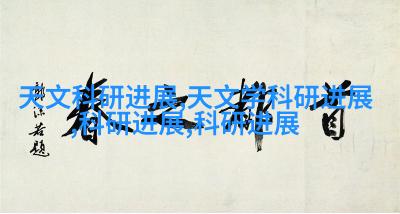 天文科研进展,天文学科研进展
,科研进展,科研进展
首都之春
郭沫若题